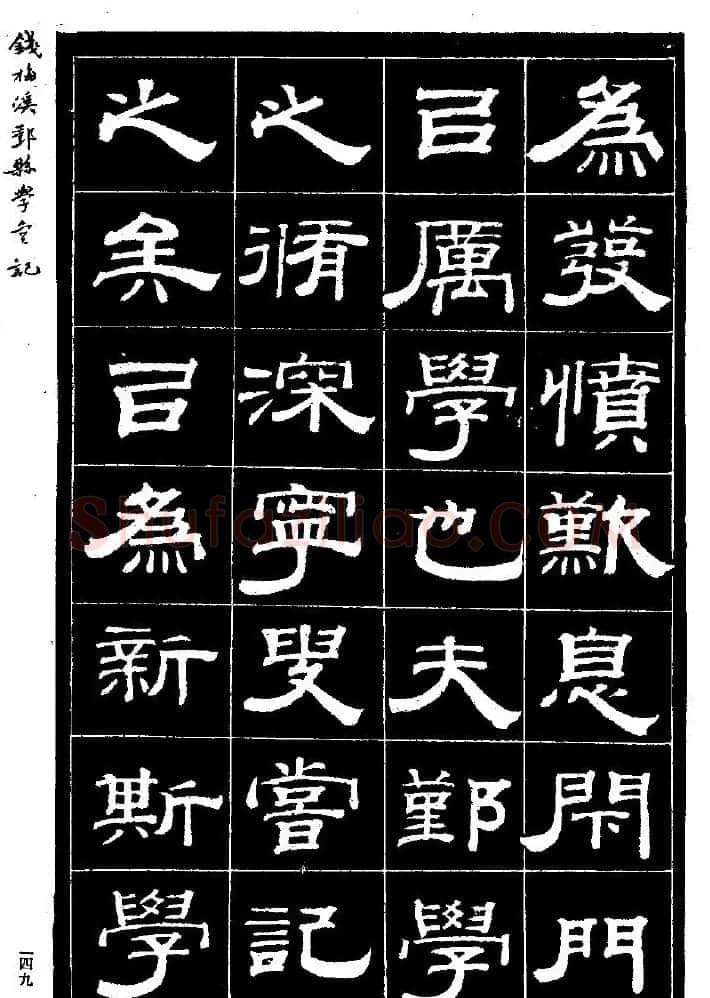 為發憤歎息閇門
㠯厲學也夫鄞學
之脩深寧叟嘗記
之矣㠯為新斯學
錢梅溪鄞縣學宮記
一四九
Shufaziliao.COM